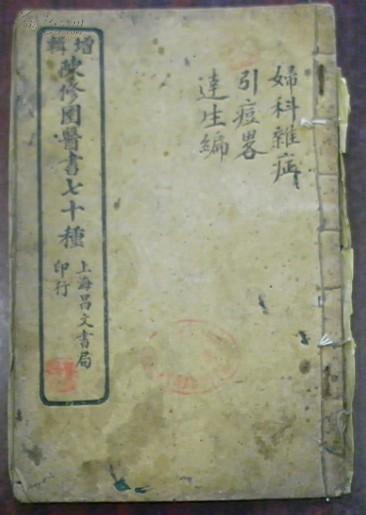 婦科雜症
引痘畧
達生編
增輯
陳修園醫書七十種
上海昌文書局
印行